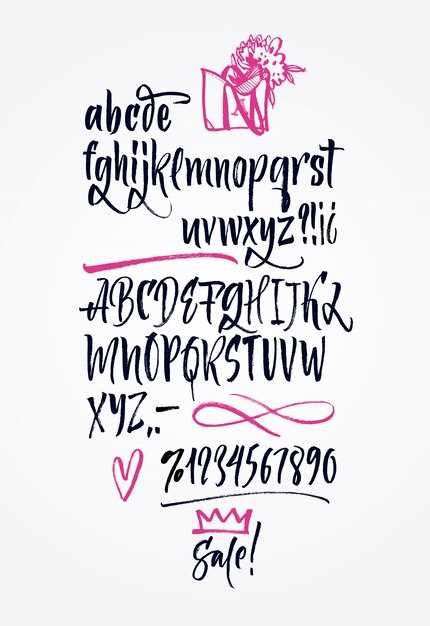 abcde
fghijklmnopqrst
uvwxyz?!¡¿
ABCDEFGHIJKL
MNOPQRSTUVW
XYZ.,–
%1234567890
Sale!